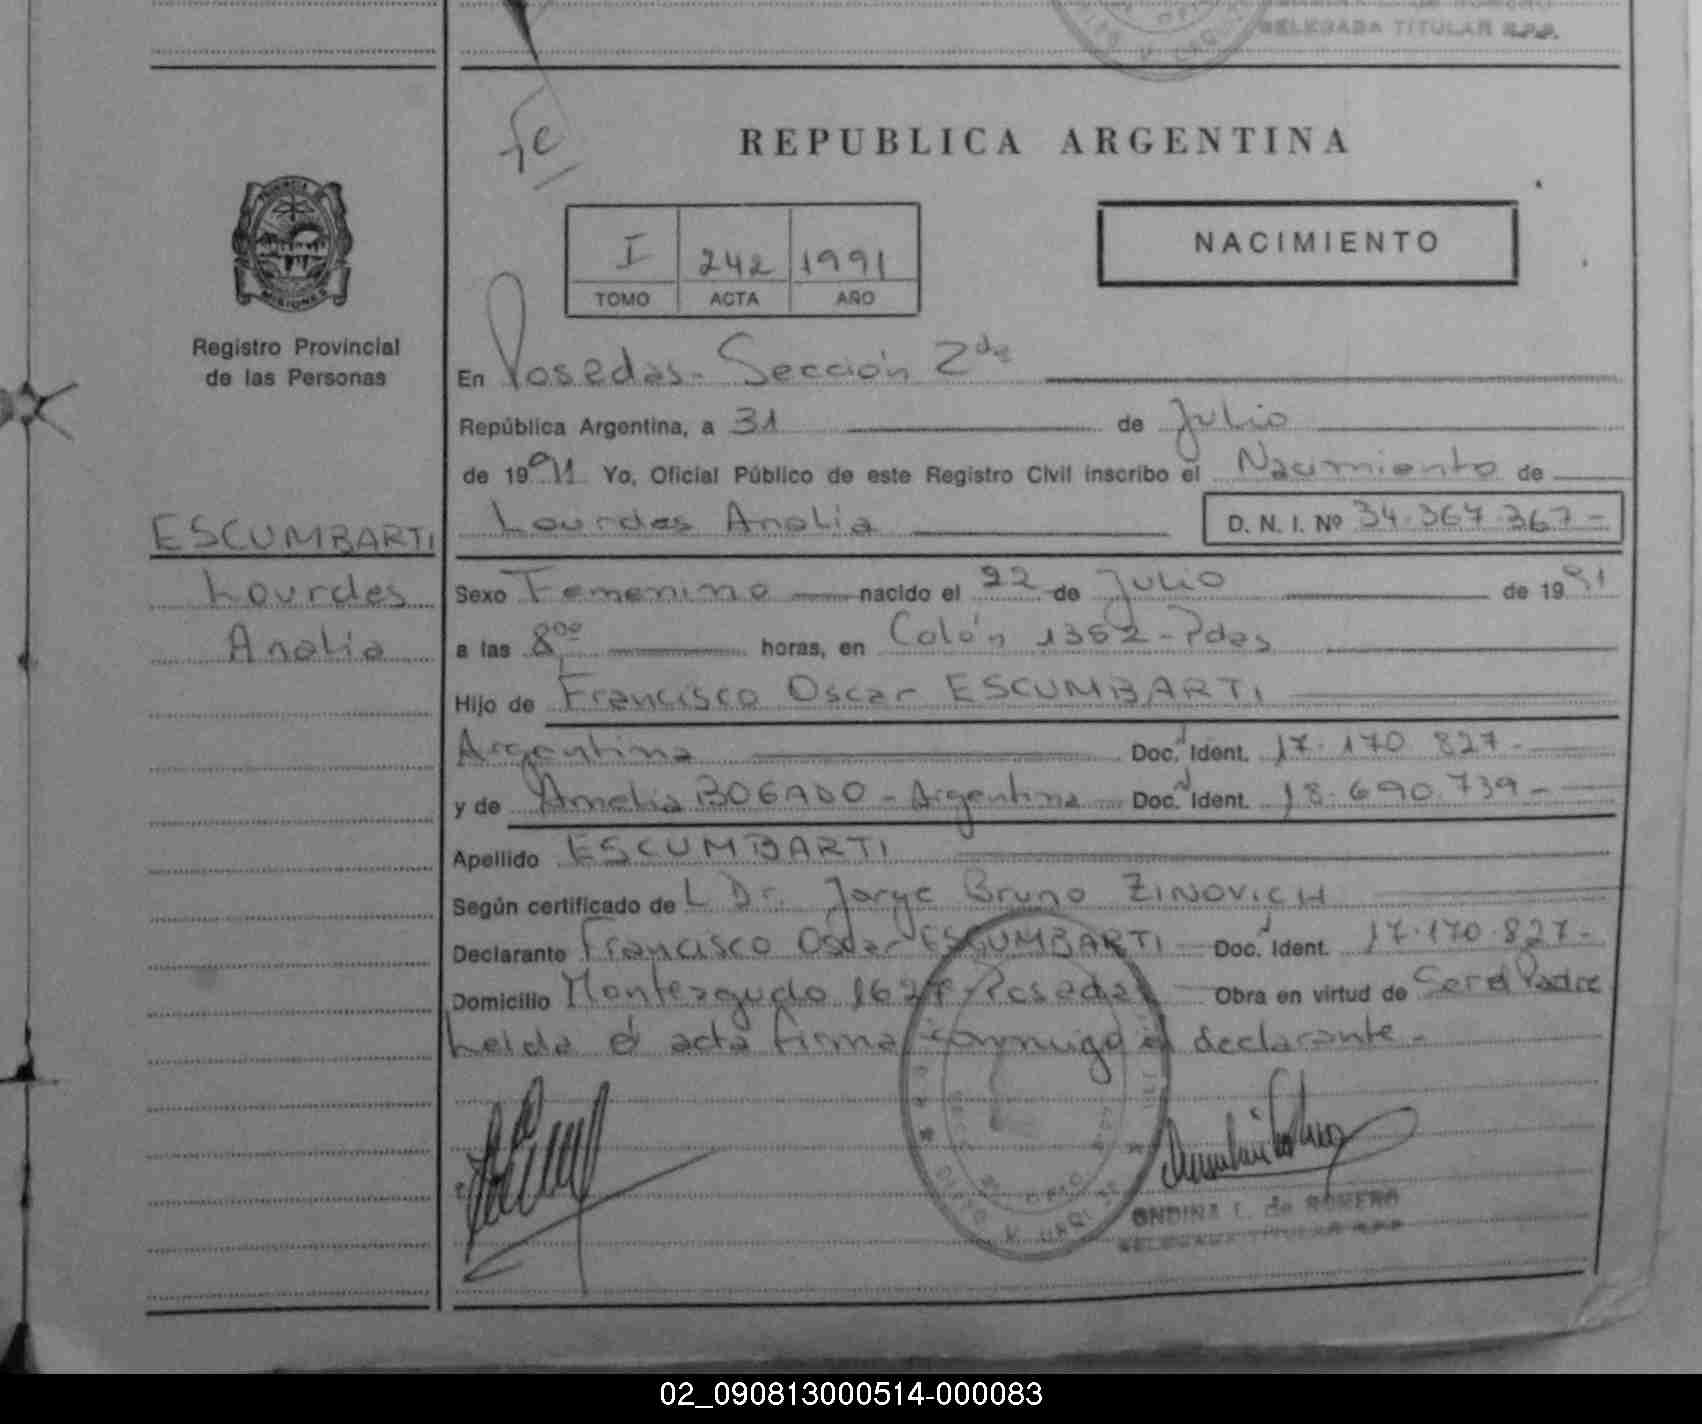 DELEGADA TITULAR R.P.P.
fe
REPUBLICA ARGENTINA
I 242 1991
TOMO ACTA AÑO
NACIMIENTO
MISIONES
Registro Provincial
de las Personas
En Posadas - Sección 2da
República Argentina, a 31 de Julio
de 1991 Yo, Oficial Público de este Registro Civil inscribo el Nacimiento de
Lourdes Analia D. N. I. Nº 34.367.367-
ESCUMBARTI
Lourdes
Analia
Sexo Femenino nacido el 22 de Julio de 1991
a las 8,00 horas, en Colón 1352 - Pdas
Hijo de Francisco Oscar ESCUMBARTI
Argentina Doc. Ident. 17.170.827-
y de Amelia BOGADO - Argentina Doc. Ident. 18.690.739-
Apellido ESCUMBARTI
Según certificado de L Dr. Jorge Bruno ZINOVICH
Declarante Francisco Oscar ESCUMBARTI Doc. Ident. 17.170.827-
Domicilio Monteagudo 1627 - Posadas Obra en virtud de Ser el Padre
Leida el acta firma conmigo el declarante.-
ONDINA L. de ROMERO
DELEGADA TITULAR R.P.P.
02_090813000514-000083